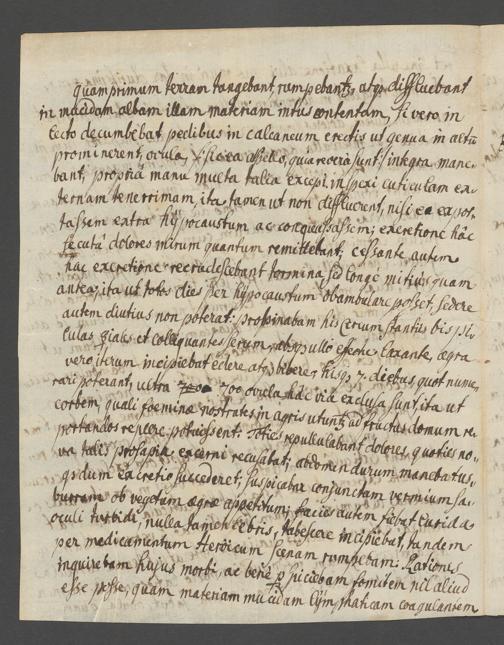 quamprimum terram tangebant, rumpebantr, atqz diffluebant
in mucidam albam illam materiam intus contentam, si vero in
lecto decumbebat pedibus in calcaneum erectis ut genua in altū
prominerent, ovula, sic ea appello, qua revera sunt, integra mane-
bant, propria manu multa talia excepi, inspexi cuticulam ex-
ternam tenerrimam, ita tamen ut non diffluerent, nisi ea expor-
tassem extra hypocaustum ac conquassassem; excretione hâc
secutâ dolores mirum quantum remittebant; cessante autem
hac excretione recrudescebant tormina sed longè mitius quam
antea, ita ut totos dies per hypocaustum obambulare posset, sedere
autem diutius non poterat: propinabam his serum stantibus
culas et colliquantes serum, laxante, ægra
vero iterum incipiebat edere atqz bibere, his 7. diebus quot nume-
rari poterant, ultra 700 ovula hac via exclusa sunt, ita ut
corbem, quali foeminæ nostrates in agris utuntr ad fructus domum
portandos replere potuissent. Toties repullulabant dolores, quoties no-
va talis prosapia excerni recusabat; abdomen durum manebat us-
qz dum excretio succederet; suspicabar conjunctam vermium sa-
burram ob vegetum ægræ appetitum; facies autem fiebat lurida
oculi turbidi, nulla tamen febris, tabescere incipiebat, tandem
per medicamentum Heroicum scenam rumpebam: Rationes
inquirebam hujus morbi, ac bene pspiciebam fomitem nil aliud
esse posse, quam materiam mucidam lymphaticam coagulantem